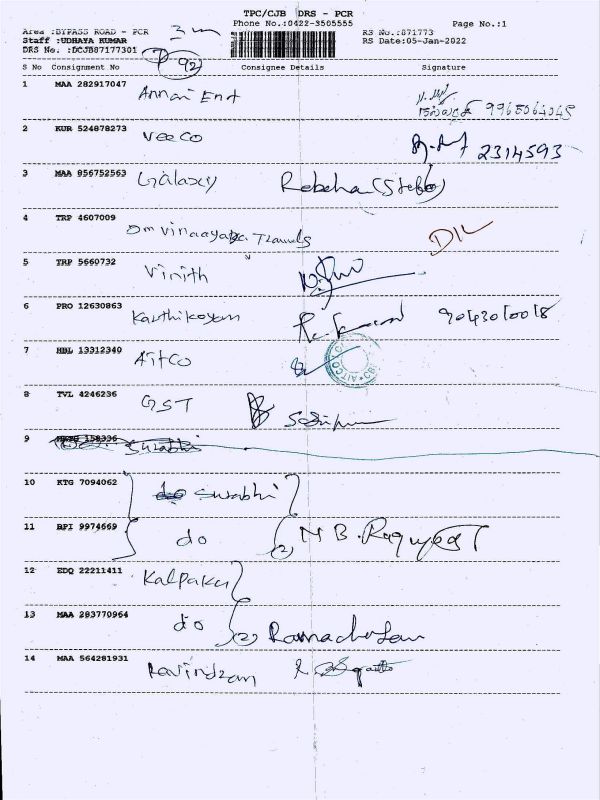 TPC/CJB DRS - PCR
Phone No.:0422-3505555 Page No.:1
Area :BYPASS ROAD - PCR RS No.:871773
Staff :UDHAYA KUMAR RS Date:05-Jan-2022
DRS No. :DCJB87177301
92
S No Consignment No Consignee Details Signature
1 MAA 282917047 Annai Ent
9965064045
2 KUR 524878273 VeeCo 2314593
3 MAA 956752563 Galaxy Rebeha (Steffo)
4 TRP 4607009 Om Vinaayaga Travels
5 TRP 5660732 Vinith
6 PRO 12630863 Karthikeyan 9043010018
7 HDL 13312340 AITCO
8 TVL 4246236 GST
9 158336 Surabhi
10 KTG 7094062 do Surabhi
11 BPI 9974669 do (2) M B.
12 EDQ 22211411 Kalpaka
13 MAA 283770964 do (2) Ramachandran
14 MAA 564281931 Ravindran